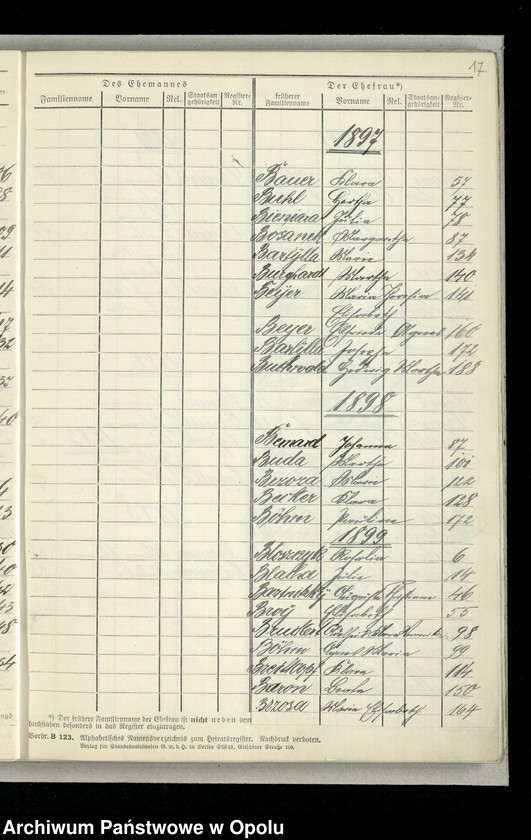 17
Des Ehemannes
Der Ehefrau*)
Familienname Vorname Rel. Staatsan-gehörigkeit Register-Nr. früherer Familienname Vorname Rel. Staatsan-gehörigkeit Register-Nr.
1897
Bauer Klara 57
Buhl Hertha 77
Bieniara Julia 78
Bosanek Margarethe 87
Bartylla Marie 134
Burghardt Martha 140
Beyer Maria Josefa 141
Elisabeth
Beyer Agnes 160
Bartylla Josefa 172
Buchwald Hedwig Martha 188
1898
Johanna 87
Buda Martha 101
Bezora Marie 122
Becker Klara 128
Böhm Pauline 172
1899
Rosalia 6
Julie 14
Auguste 46
Broy Elisabeth 55
98
Böhm Maria 99
Bockkopf Klara 114
Baron Berta 150
Berosa Maria Elisabeth 164
*) Der frühere Familienname der Ehefrau ist nicht neben dem
buchstaben besonders in das Register einzutragen.
Vordr. B 123. Alphabetisches Namensverzeichnis zum Heiratsregister. Nachdruck verboten.
Verlag für Standesamtswesen G. m. b. H. in Berlin SW 61, Gitschiner Straße 109.
Archiwum Państwowe w Opolu